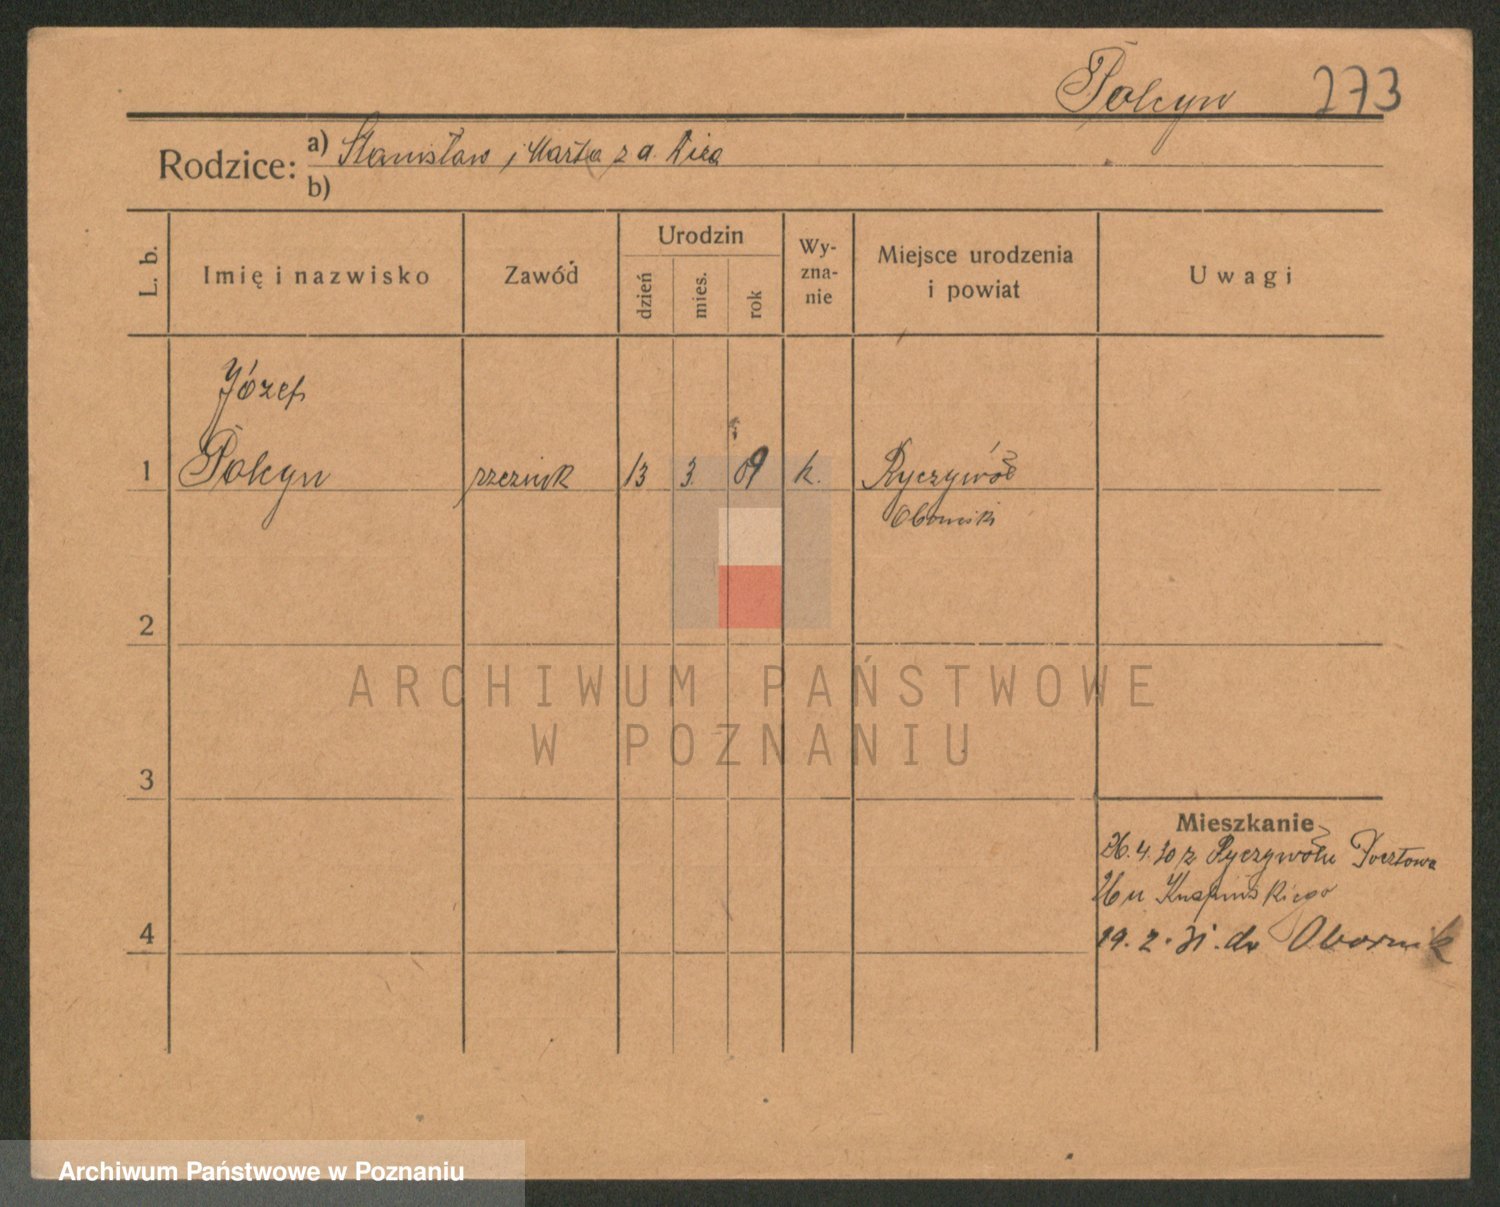 Polcyn 273
Rodzice: a) Stanisław i Marta z d.
b)
L. b. Imię i nazwisko Zawód Urodzin dzień mies. rok Wy-zna-nie Miejsce urodzenia i powiat Uwagi
Józef
1 Polcyn rzeźnik 13 3 09 k. Ryczywół
Obornicki
2
ARCHIWUM PAŃSTWOWE
W POZNANIU
3
Mieszkanie
26.4.30 z Ryczywołu Pocztowa
26 u Knapińskiego
4 19.2.31. do Obornik
Archiwum Państwowe w Poznaniu